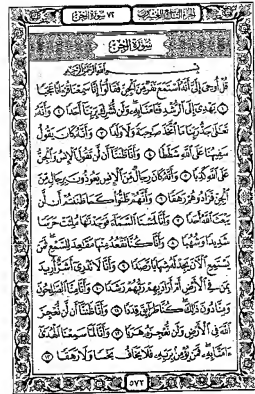 الجزء التاسع والعشرون ٧٢ سورة الجن
سُورَةُ الجِنِّ
بِسْمِ ٱللَّهِ ٱلرَّحْمَٰنِ ٱلرَّحِيمِ
قُلْ أُوحِىَ إِلَىَّ أَنَّهُ ٱسْتَمَعَ نَفَرٌ مِّنَ ٱلْجِنِّ فَقَالُوٓا۟ إِنَّا سَمِعْنَا قُرْءَانًا عَجَبًا
١ يَهْدِىٓ إِلَى ٱلرُّشْدِ فَـَٔامَنَّا بِهِۦ وَلَن نُّشْرِكَ بِرَبِّنَآ أَحَدًا ٢ وَأَنَّهُۥ
تَعَٰلَىٰ جَدُّ رَبِّنَا مَا ٱتَّخَذَ صَٰحِبَةً وَلَا وَلَدًا ٣ وَأَنَّهُۥ كَانَ يَقُولُ
سَفِيهُنَا عَلَى ٱللَّهِ شَطَطًا ٤ وَأَنَّا ظَنَنَّآ أَن لَّن تَقُولَ ٱلْإِنسُ وَٱلْجِنُّ
عَلَى ٱللَّهِ كَذِبًا ٥ وَأَنَّهُۥ كَانَ رِجَالٌ مِّنَ ٱلْإِنسِ يَعُوذُونَ بِرِجَالٍ مِّنَ
ٱلْجِنِّ فَزَادُوهُمْ رَهَقًا ٦ وَأَنَّهُمْ ظَنُّوا۟ كَمَا ظَنَنتُمْ أَن لَّن
يَبْعَثَ ٱللَّهُ أَحَدًا ٧ وَأَنَّا لَمَسْنَا ٱلسَّمَآءَ فَوَجَدْنَٰهَا مُلِئَتْ حَرَسًا
شَدِيدًا وَشُهُبًا ٨ وَأَنَّا كُنَّا نَقْعُدُ مِنْهَا مَقَٰعِدَ لِلسَّمْعِ فَمَن
يَسْتَمِعِ ٱلْـَٔانَ يَجِدْ لَهُۥ شِهَابًا رَّصَدًا ٩ وَأَنَّا لَا نَدْرِىٓ أَشَرٌّ أُرِيدَ
بِمَن فِى ٱلْأَرْضِ أَمْ أَرَادَ بِهِمْ رَبُّهُمْ رَشَدًا ١٠ وَأَنَّا مِنَّا ٱلصَّٰلِحُونَ
وَمِنَّا دُونَ ذَٰلِكَ كُنَّا طَرَآئِقَ قِدَدًا ١١ وَأَنَّا ظَنَنَّآ أَن لَّن نُّعْجِزَ
ٱللَّهَ فِى ٱلْأَرْضِ وَلَن نُّعْجِزَهُۥ هَرَبًا ١٢ وَأَنَّا لَمَّا سَمِعْنَا ٱلْهُدَىٰٓ
ءَامَنَّا بِهِۦ فَمَن يُؤْمِنۢ بِرَبِّهِۦ فَلَا يَخَافُ بَخْسًا وَلَا رَهَقًا ١٣
٥٧٢